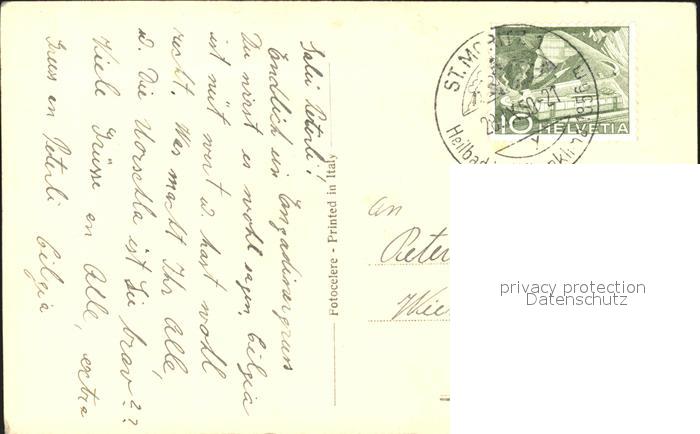 Salü Peterli!
Endlich ein Engadinergruss
Du wirst es wohl sagen, Gilgia
ist nüt wert u. hast wohl
recht. Was macht Ihr Alle,
u. Die Urschla ist Sie brav??
Viele Grüsse an Alle, extra
Gruss an Peterli Gilgia
Fotocelere - Printed in Italy
ST. MORITZ
Heilbad
10 HELVETIA
an
Peter
privacy protection
Datenschutz